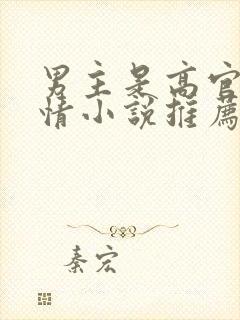 男主是高官
情小說推薦
秦宏